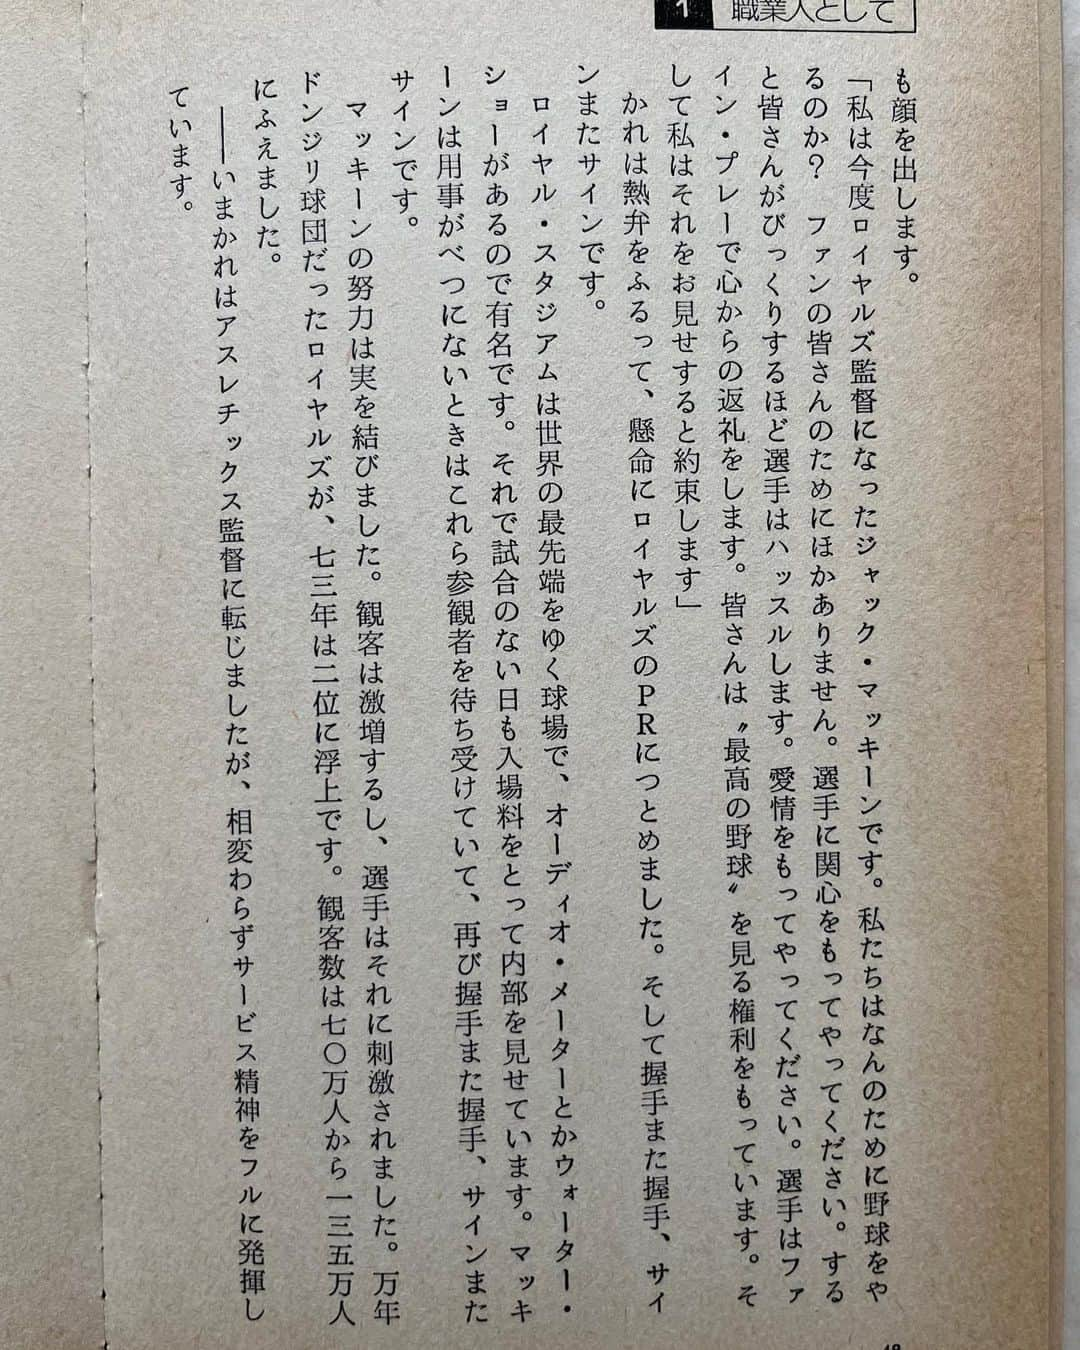 1 職業人として
も顔を出します。
「私は今度ロイヤルズ監督になったジャック・マッキーンです。私たちはなんのために野球をや
るのか？　ファンの皆さんのためにほかありません。選手に関心をもってやってください。する
と皆さんがびっくりするほど選手はハッスルします。愛情をもってやってください。選手はファ
イン・プレーで心からの返礼をします。皆さんは〝最高の野球〟を見る権利をもっています。そ
して私はそれをお見せすると約束します」
かれは熱弁をふるって、懸命にロイヤルズのPRにつとめました。そして握手また握手、サイ
ンまたサインです。
ロイヤル・スタジアムは世界の最先端をゆく球場で、オーディオ・メーターとかウォーター・
ショーがあるので有名です。それで試合のない日も入場料をとって内部を見せています。マッキ
ーンは用事がべつにないときはこれら参観者を待ち受けていて、再び握手また握手、サインまた
サインです。
マッキーンの努力は実を結びました。観客は激増するし、選手はそれに刺激されました。万年
ドンジリ球団だったロイヤルズが、七三年は二位に浮上です。観客数は七〇万人から一三五万人
にふえました。
――いまかれはアスレチックス監督に転じましたが、相変わらずサービス精神をフルに発揮し
ています。